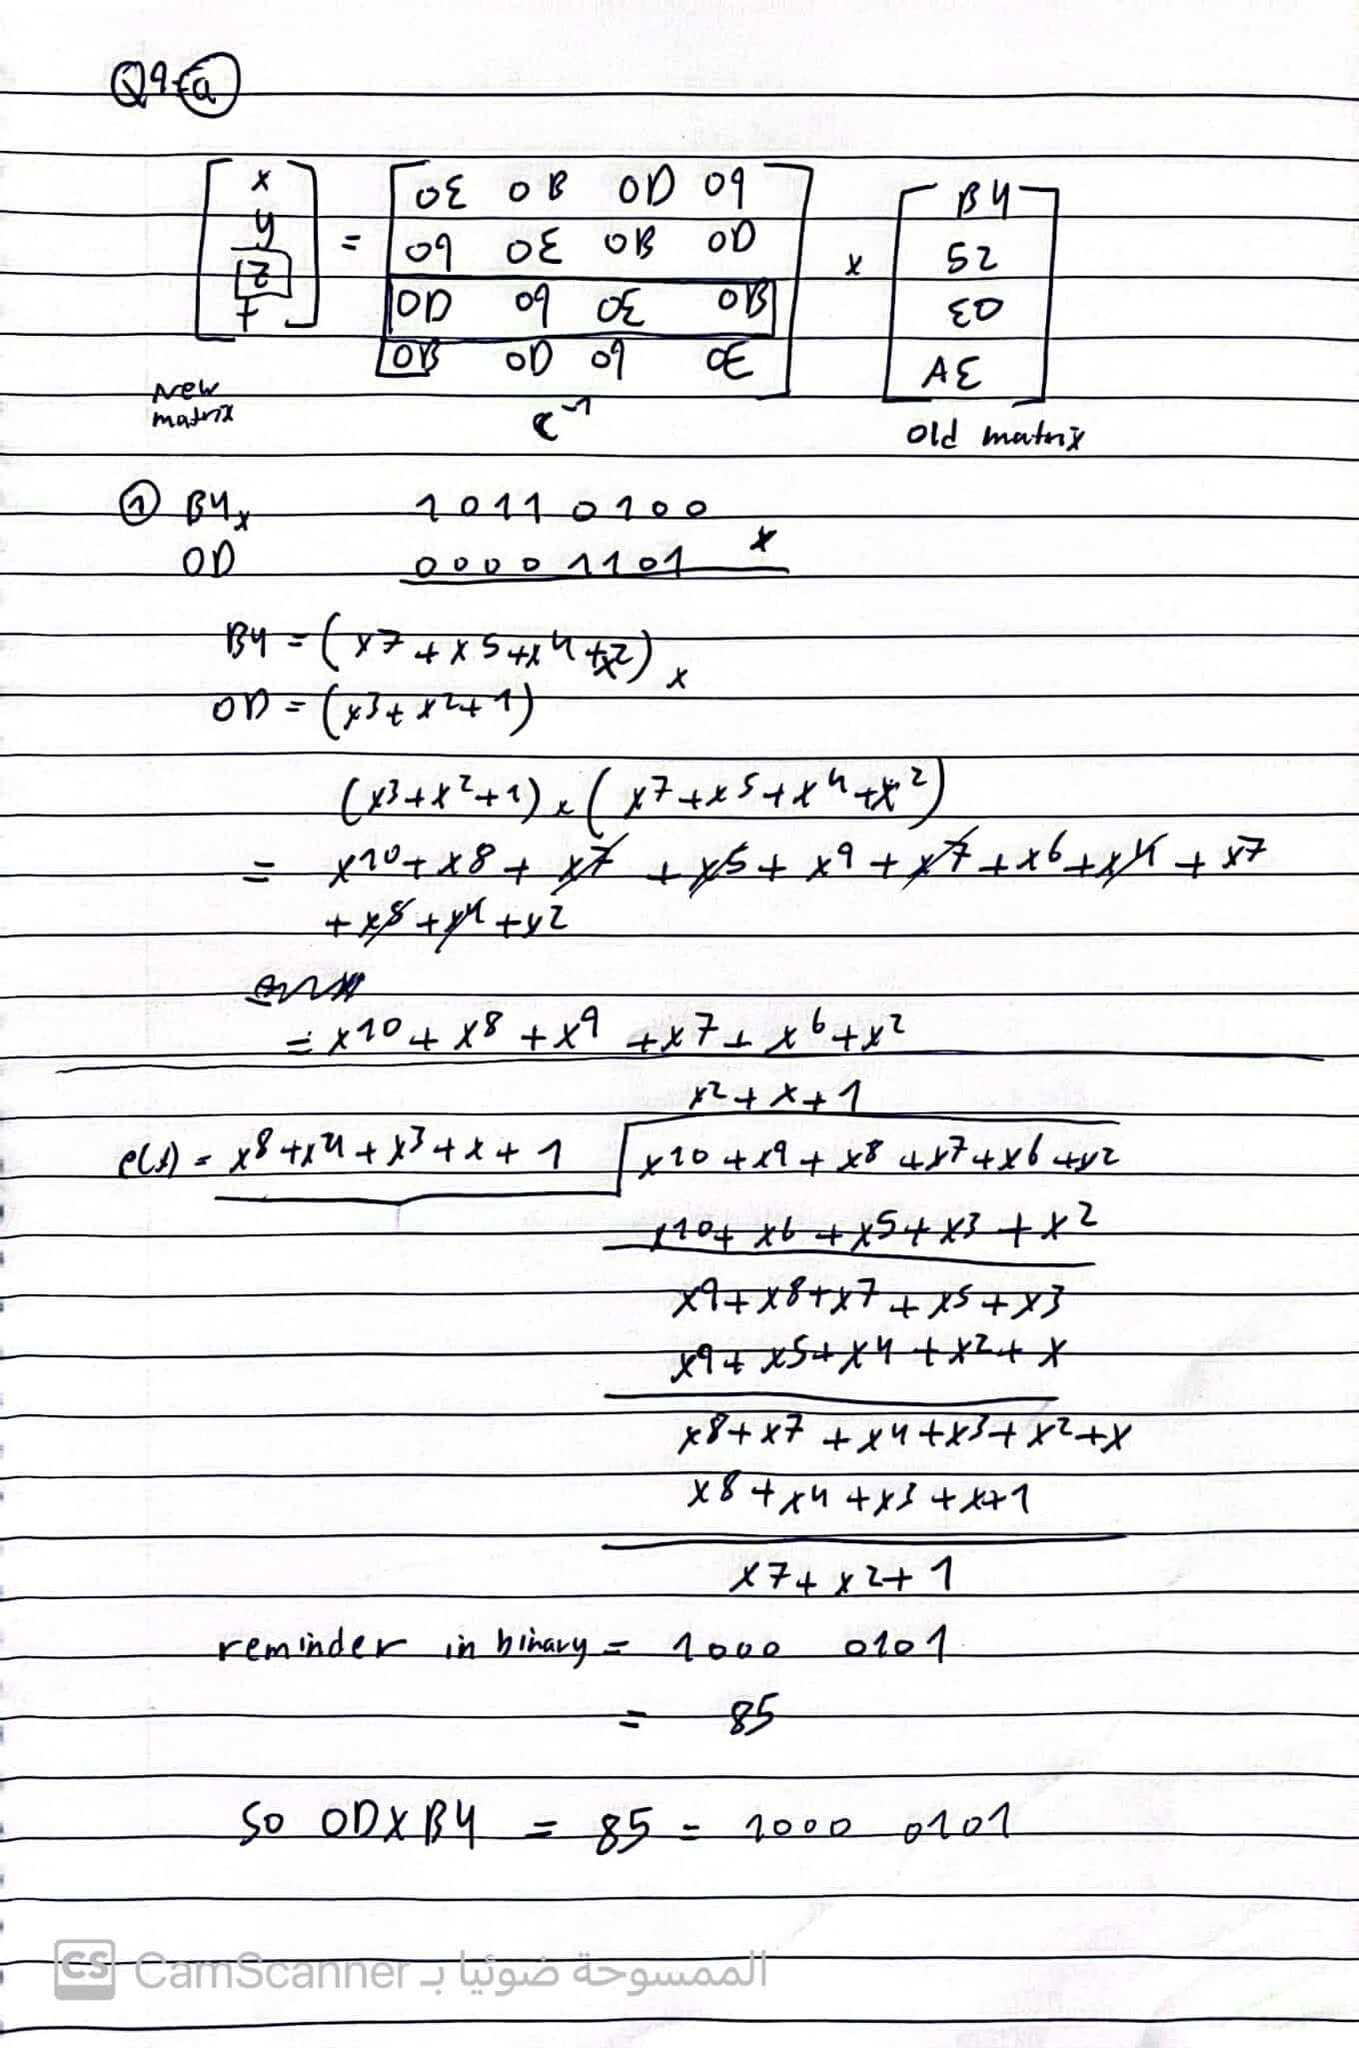 Q9-a
x
y
z
t
=
0E 0B 0D 09
09 0E 0B 0D
0D 09 0E 0B
0B 0D 09 0E
x
B4
52
03
AE
New
matrix
c^-1
old matrix
① B4 x 10110100
0D 00001101 x
B4 = (x7 + x5 + x4 + x2) x
0D = (x3 + x2 + 1)
(x3 + x2 + 1) x (x7 + x5 + x4 + x2)
= x10 + x8 + x7 + x5 + x9 + x7 + x6 + x4 + x7
+ x5 + x4 + x2
= x10 + x8 + x9 + x7 + x6 + x2
x2 + x + 1
p(x) = x8 + x4 + x3 + x + 1 x10 + x9 + x8 + x7 + x6 + x2
x10 + x6 + x5 + x3 + x2
x9 + x8 + x7 + x5 + x3
x9 + x5 + x4 + x2 + x
x8 + x7 + x4 + x3 + x2 + x
x8 + x4 + x3 + x + 1
x7 + x2 + 1
reminder in binary = 1000 0101
= 85
So 0D x B4 = 85 = 1000 0101
CS CamScanner الممسوحة ضوئيا بـ